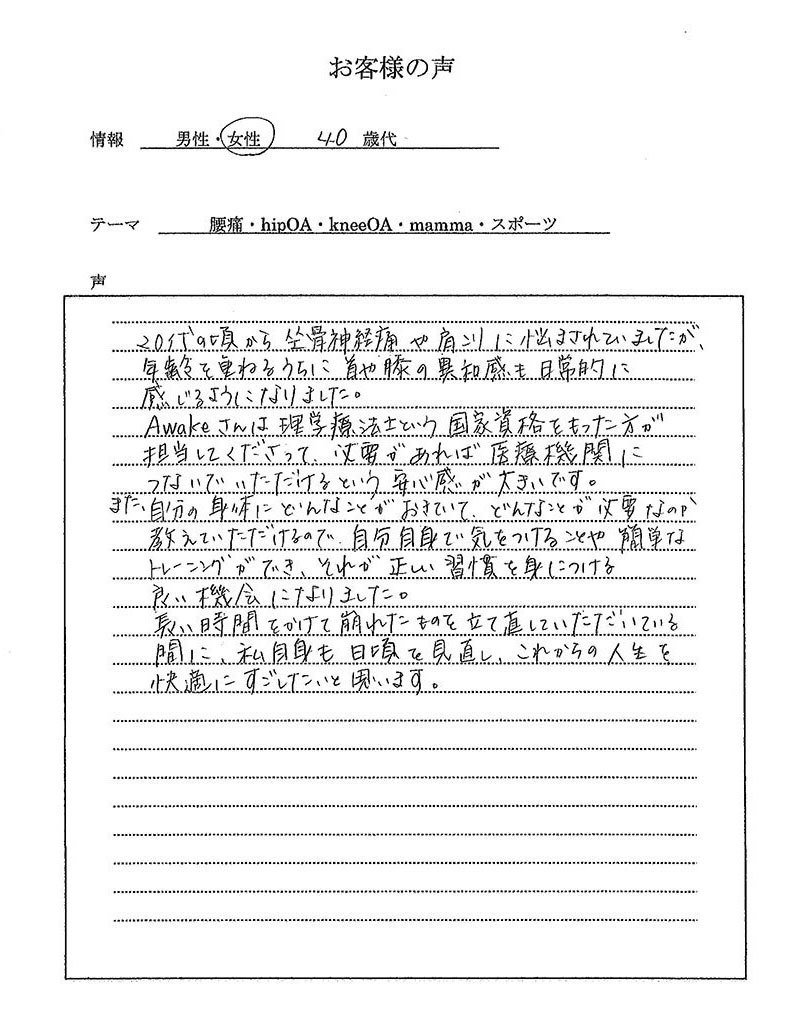 お客様の声
情報 男性・女性 40 歳代
テーマ 腰痛・hipOA・kneeOA・mamma・スポーツ
声
20代の頃から 坐骨神経痛や肩こりに悩まされていましたが、
年齢を重ねるうちに 首や膝の異和感も日常的に
感じるようになりました。
Awakeさんは理学療法士という国家資格をもった方が
担当してくださって、必要があれば医療機関に
つないでいただけるという安心感が大きいです。
また、自分の身体にどんなことがおきていて、どんなことが必要なのか
教えていただけるので、自分自身で気をつけることや簡単な
トレーニングができ、それが正しい習慣を身につける
良い機会になりました。
長い時間をかけて崩れたものを立て直していただいている
間に、私自身も日頃を見直し、これからの人生を
快適にすごしたいと思います。